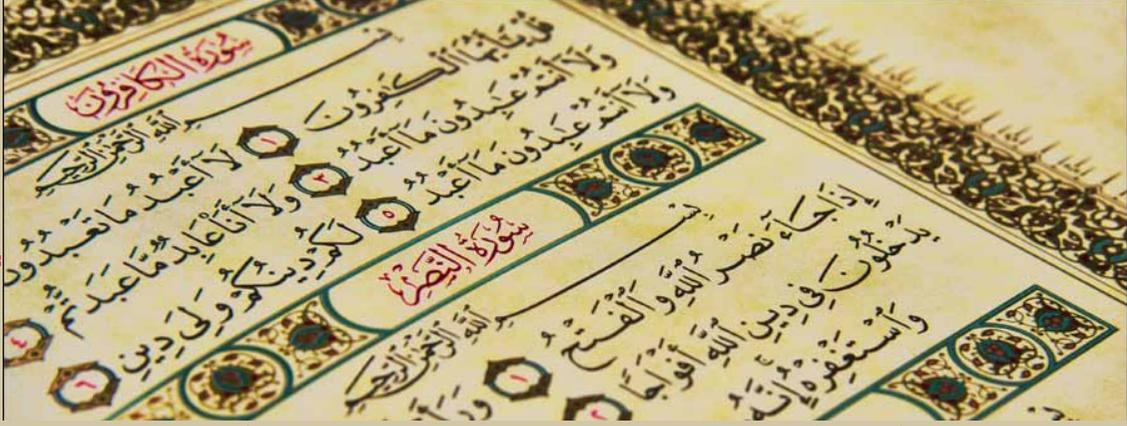 سُورَةُ الكَافِرُونَ
بِسْمِ اللَّهِ الرَّحْمَٰنِ الرَّحِيمِ
قُلْ يَٰٓأَيُّهَا ٱلْكَٰفِرُونَ ١ لَآ أَعْبُدُ مَا تَعْبُدُونَ
وَلَآ أَنتُمْ عَٰبِدُونَ مَآ أَعْبُدُ ٣ وَلَآ أَنَا۠ عَابِدٌ مَّا عَبَدتُّمْ ٤
وَلَآ أَنتُمْ عَٰبِدُونَ مَآ أَعْبُدُ ٥ لَكُمْ دِينُكُمْ وَلِىَ دِينِ ٦
سُورَةُ النَّصْرِ
بِسْمِ اللَّهِ الرَّحْمَٰنِ الرَّحِيمِ
إِذَا جَآءَ نَصْرُ ٱللَّهِ وَٱلْفَتْحُ ١
يَدْخُلُونَ فِى دِينِ ٱللَّهِ أَفْوَاجًا ٢
وَٱسْتَغْفِرْهُ إِنَّهُۥ